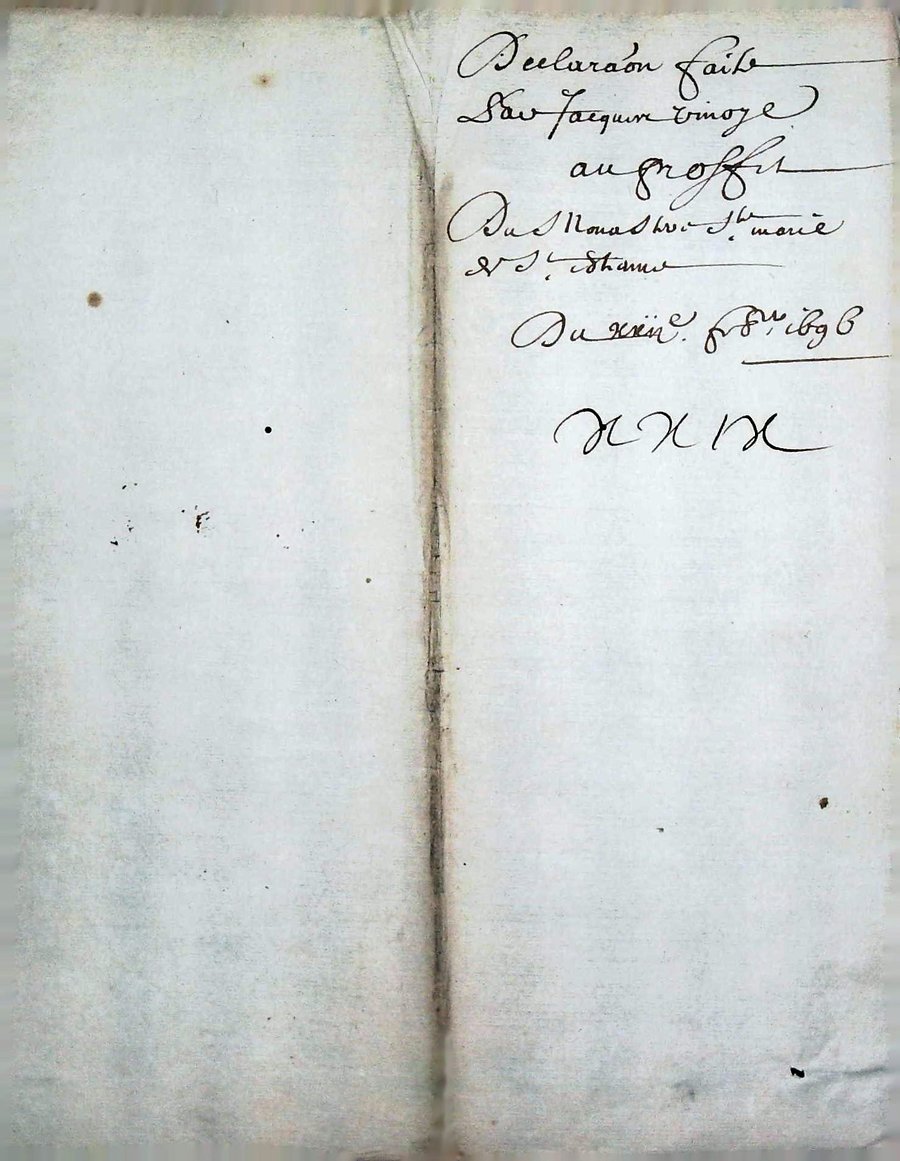 Declaraon faite
Par Jacquin vinoze
au proffit
Du Monastere Ste marie
de St. estienne
Du xxiie. 1696
XXIX